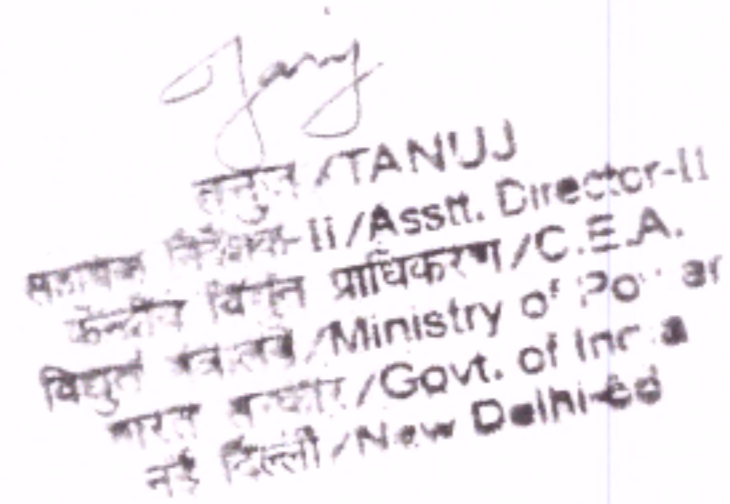 तनुज /TANUJ
सहायक निदेशक-II/Asstt. Director-II
केन्द्रीय विद्युत प्राधिकरण/C.E.A.
विद्युत मंत्रालय/Ministry of Power
भारत सरकार/Govt. of India
नई दिल्ली/New Delhi